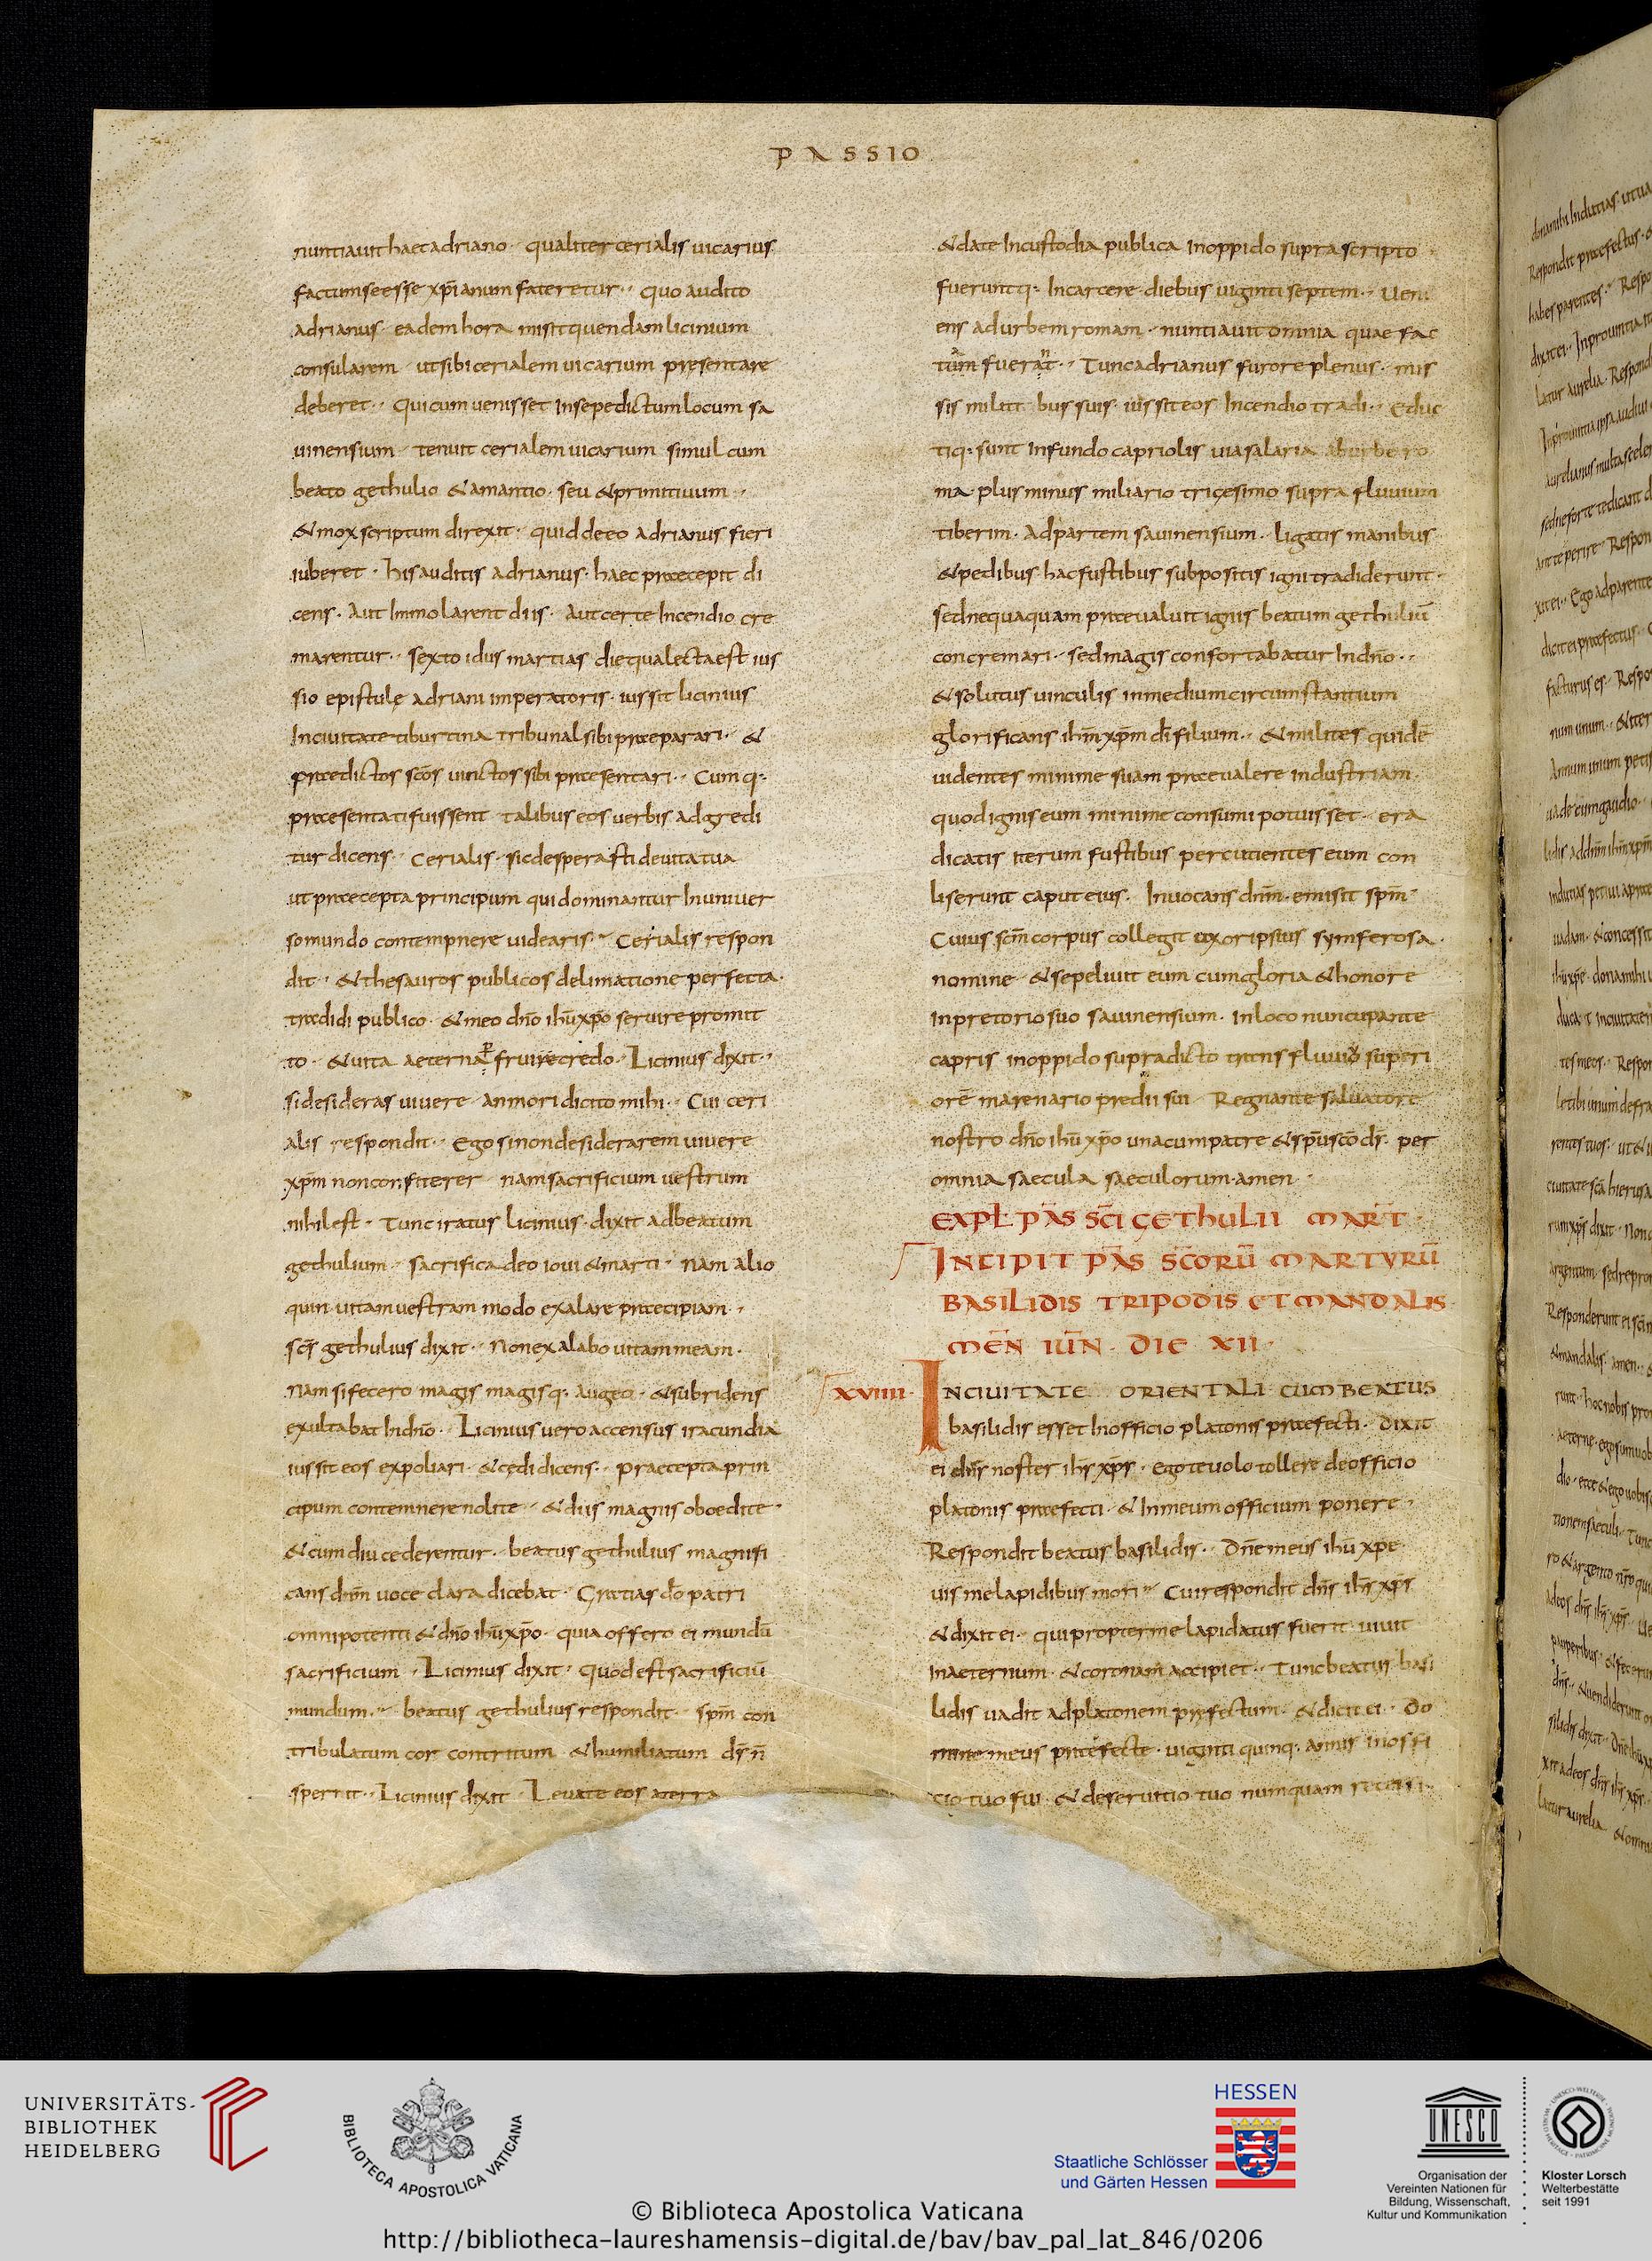 PASSIO
nuntiauit haec adriano · qualiter cerialis uicarius
factum se esse xp̄ianum fateretur · quo audito
adrianus · eadem hora misit quendam licinium
consularem · ut sibi cerialem uicarium presentare
deberet · qui cum uenisset In sepe dictum locum sa
uinensium · tenuit cerialem uicarium simul cum
beato gethulio & amantio · seu & primitiuum ·
& mox scriptum direxit · quid de eo adrianus fieri
iuberet · his auditis adrianus · haec praecepit di
cens · Aut Immolarent diis · Aut certe Incendio cre
marentur · sexto idus martias die qua lecta est ius
sio epistulę adriani imperatoris · iussit licinius
In ciuitate tiburtina tribunal sibi praeparari · &
praedictos sc̄os uinctos sibi praesentari · Cumq:
praesentati fuissent talibus eos uerbis adgredi
tur dicens · Cerialis · sic desperasti de uita tua
ut praecepta principum qui dominantur In uniuer
so mundo contempnere uidearis · Cerialis respon
dit · & thesauros publicos delimatione perfecta ·
tradidi publico · & meo dn̄o ihū xp̄o seruire promit
to · & uita aeterna p̄ fruire credo · Licinius dixit ·
si desideras uiuere an mori dicito mihi · Cui ceri
alis respondit · Ego si non desiderarem uiuere
xp̄m non confiterer nam sacrificium uestrum
nihil est · Tunc iratus licinius · dixit ad beatum
gethulium · sacrifica deo ioui & marti · nam alio
quin uitam uestram modo exalare praecipiam ·
sc̄s gethulius dixit · non exalabo uitam meam ·
nam si fecero magis magisq: augeo · & subridens
exultabat In dn̄o · Licinius uero accensus iracundia
iussit eos expoliari · & cędi dicens · praecepta prin
cipum contemnere nolite · & diis magnis oboedite ·
& cum diu cederentur · beatus gethulius magnifi
cans dn̄m uoce clara dicebat · Gratias dō patri
omnipotenti & dn̄o ihū xp̄o · quia offero ei mundū
sacrificium · Licinius dixit · quod est sacrificiū
mundum · beatus gethulius respondit · sp̄m con
tribulatum cor contritum & humiliatum ds̄ n̄
spernit · Licinius dixit · Leuate eos a terra
& date In custodia publica In oppido supra scripto
fueruntq: In carcere diebus uiginti septem · Ueni
ens ad urbem romam · nuntiauit omnia quae fac
tum fuerat · Tunc adrianus furore plenus · mis
sis milit bus suis · iussit eos Incendio tradi · Educ
tiq: sunt In fundo capriolis uia salaria ab urbe ro
ma plus minus miliario tricesimo supra fluuium
tiberim · Ad partem sauinensium · ligatis manibus
& pedibus · hac fustibus subpositis igni tradiderunt ·
sed nequaquam praeualuit ignis beatum gethuliū
concremari · sed magis confortabatur In dn̄o ·
& solutus uinculis in medium circumstantium
glorificans ihm̄ xp̄m dī filium · & milites quidē
uidentes minime suam praeualere industriam ·
quod ignis eum minime consumi potuisset · era
dicatis iterum fustibus percutientes eum con
liserunt caput eius · Inuocans dn̄m · emisit sp̄m ·
Cuius sc̄m corpus collegit uxor ipsius symferosa ·
nomine · & sepeliuit eum cum gloria & honore
In pretorio suo sauinensium · In loco nuncupante
capris in oppido supradicto trans fluuio superi
orē In arenario predii sui Regnante saluatore
nostro dn̄o ihū xp̄o una cum patre & sp̄u sc̄o ds̄ · per
omnia saecula saeculorum · amen ·
EXPL PAS̄ SC̄I GETHULII MART̄ ·
INCIPIT PAS̄ SC̄ORŪ MARTYRŪ
BASILIDIS TRIPODIS ET MANDALIS ·
MEN̄ IUN̄ · DIE XII ·
XVIIII · IN CIUITATE ORIENTALI CUM BEATUS
basilidis esset In officio platonis praefecti · Dixit
ei dn̄s noster ihs̄ xp̄s · ego te uolo tollere de officio
platonis praefecti · & In meum officium ponere ·
Respondit beatus basilidis · Dn̄e meus ihū xp̄e
uis me lapidibus mori · Cui respondit dn̄s ihs̄ xp̄s
& dixit ei · qui propter me lapidatus fuerit uiuit
In aeternum · & coronam accipiet · Tunc beatus basi
lidis uadit ad platonem praefectum · & dicit ei · Do
mine meus praefecte · uiginti quinq: annis In offi
cio tuo fui · & deseruitio tuo numquam recessi ·
UNIVERSITÄTS-
BIBLIOTHEK
HEIDELBERG
BIBLIOTECA APOSTOLICA VATICANA
HESSEN
Staatliche Schlösser
und Gärten Hessen
UNESCO
Organisation der
Vereinten Nationen für
Bildung, Wissenschaft,
Kultur und Kommunikation
Kloster Lorsch
Welterbestätte
seit 1991
© Biblioteca Apostolica Vaticana
http://bibliotheca-laureshamensis-digital.de/bav/bav_pal_lat_846/0206